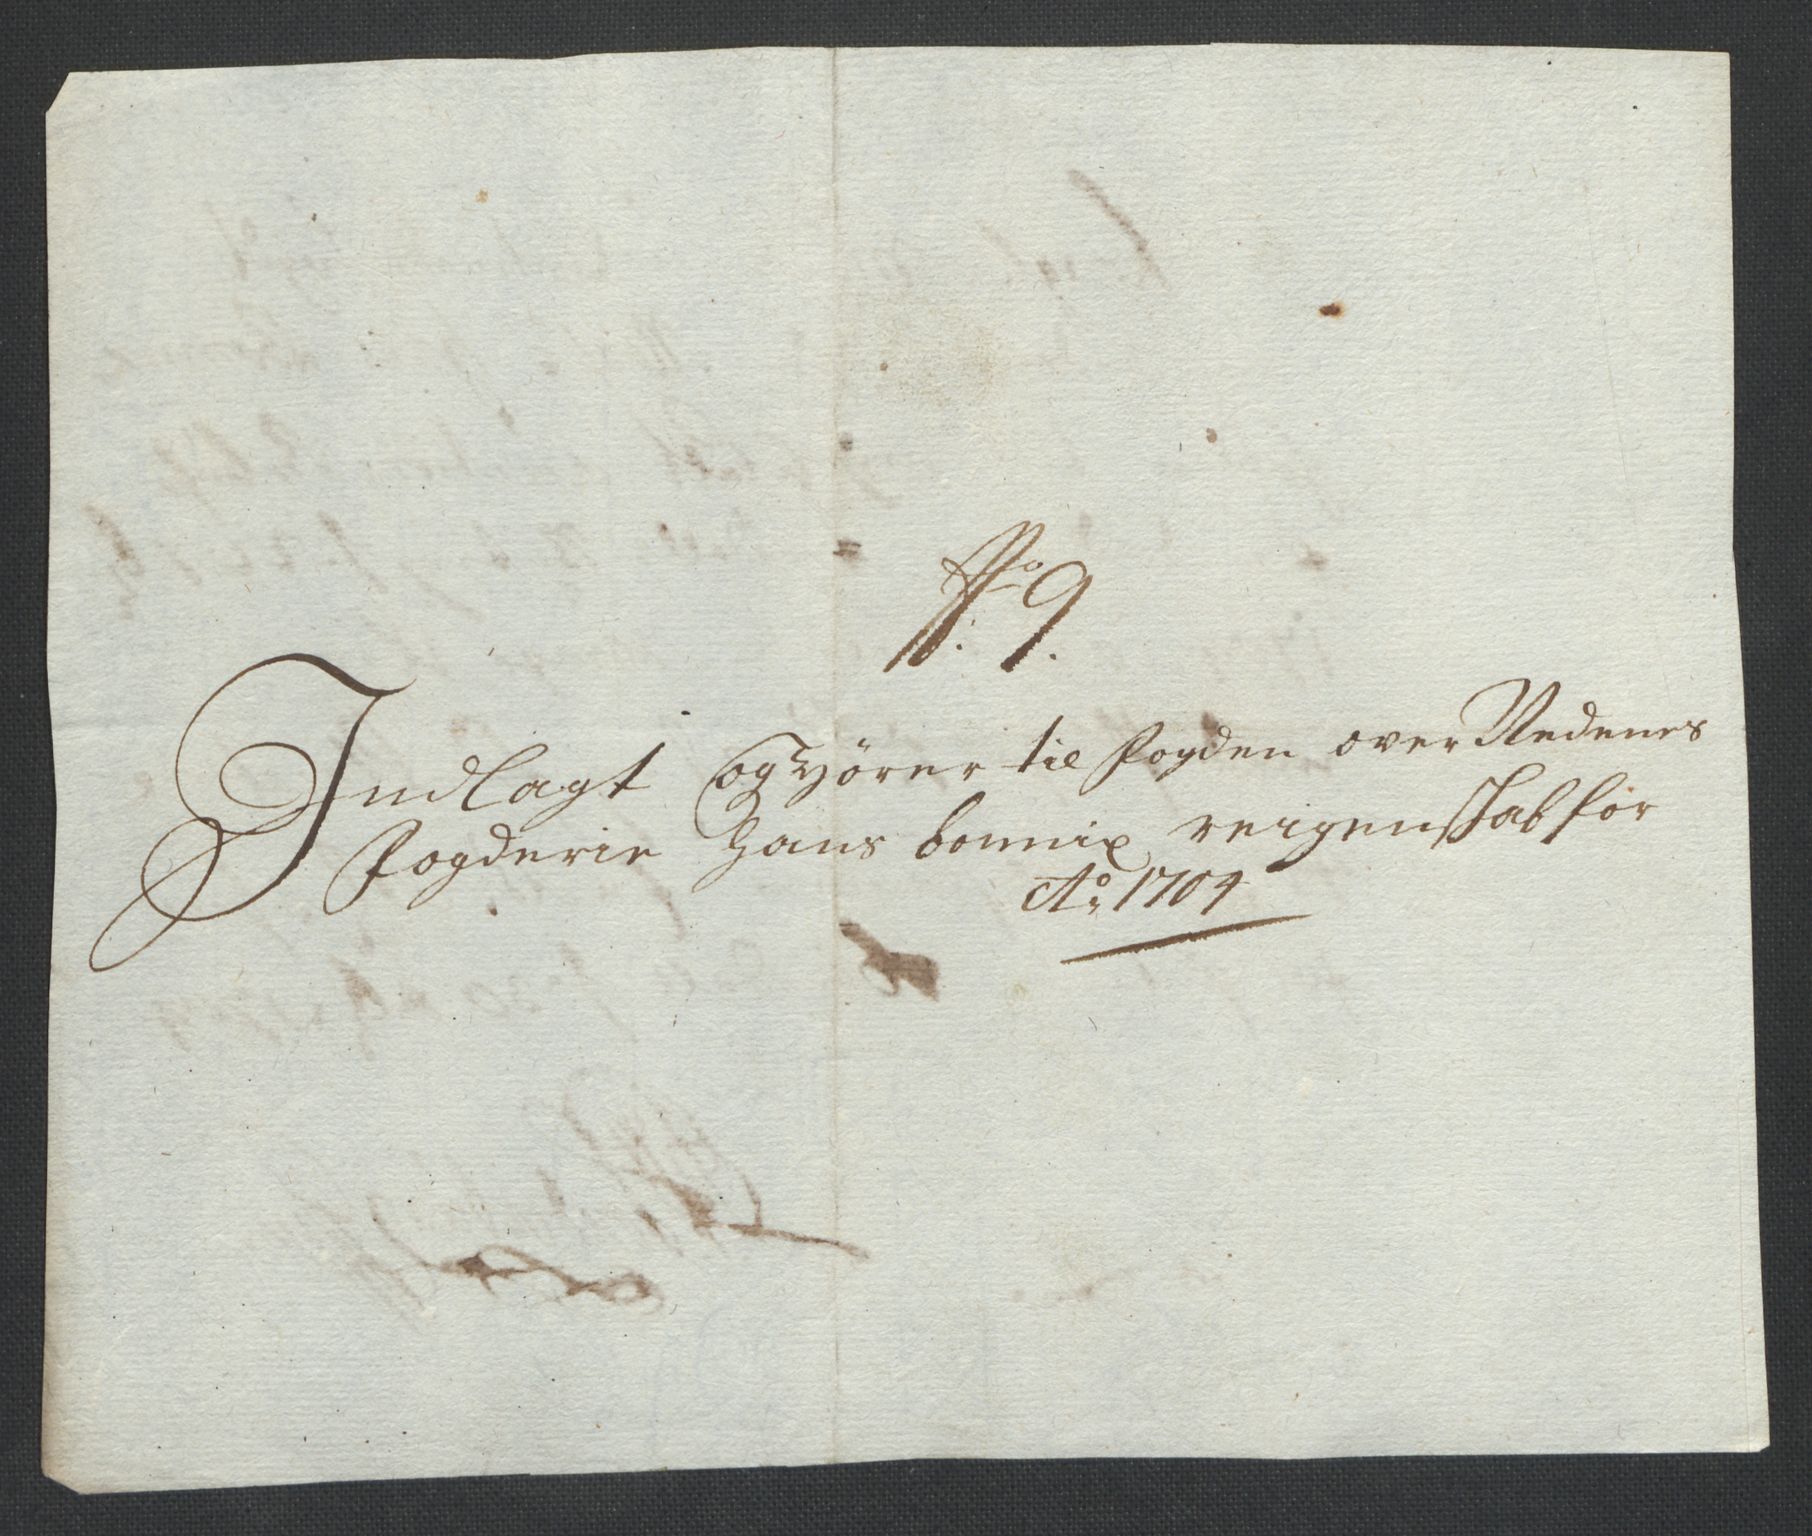 No 9.
Indlagt og hörer til fogden over Nedenes
fogderie Hans bonnix reigenskab for
Ao 1704